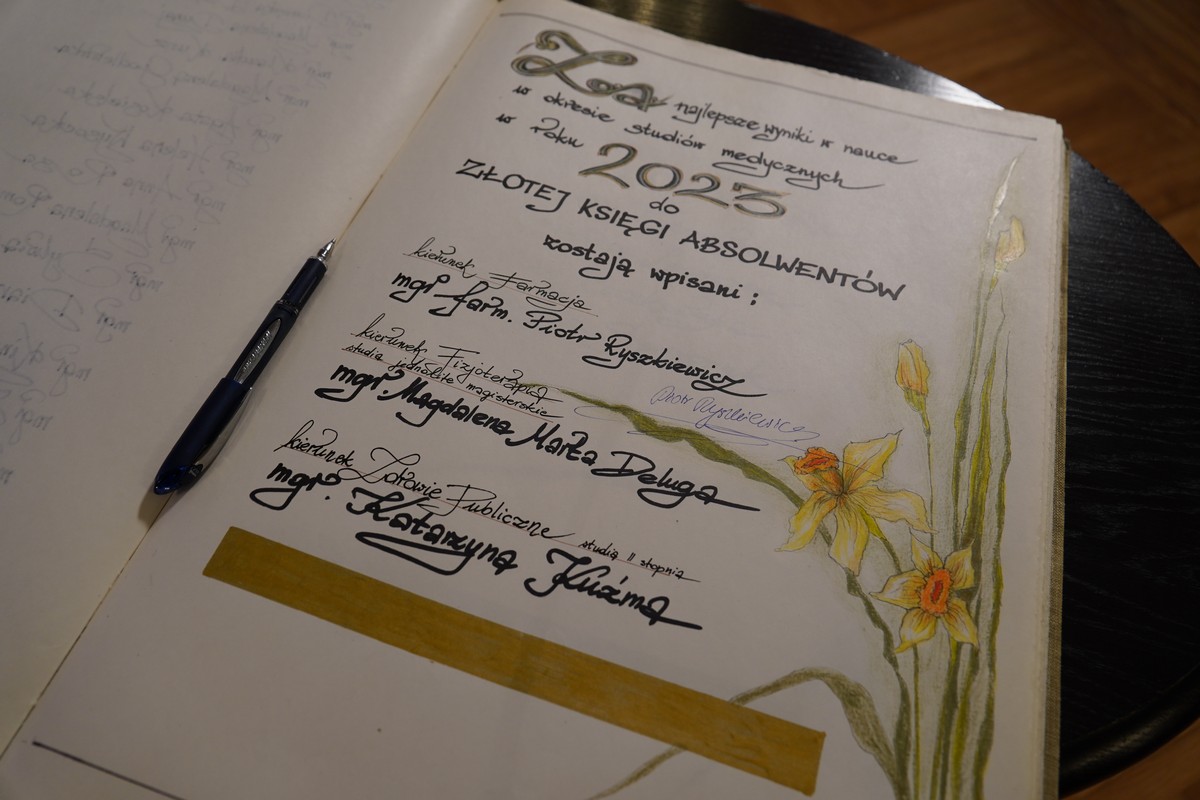 Za najlepsze wyniki w nauce
w okresie studiów medycznych
w roku 2023
do
ZŁOTEJ KSIĘGI ABSOLWENTÓW
zostają wpisani :
kierunek Farmacja
mgr farm. Piotr Ryszkiewicz
Piotr Ryszkiewicz
kierunek Fizjoterapia
studia jednolite magisterskie
mgr. Magdalena Marta Deluga
kierunek Zdrowie Publiczne studia II stopnia
mgr. Katarzyna Kuźma